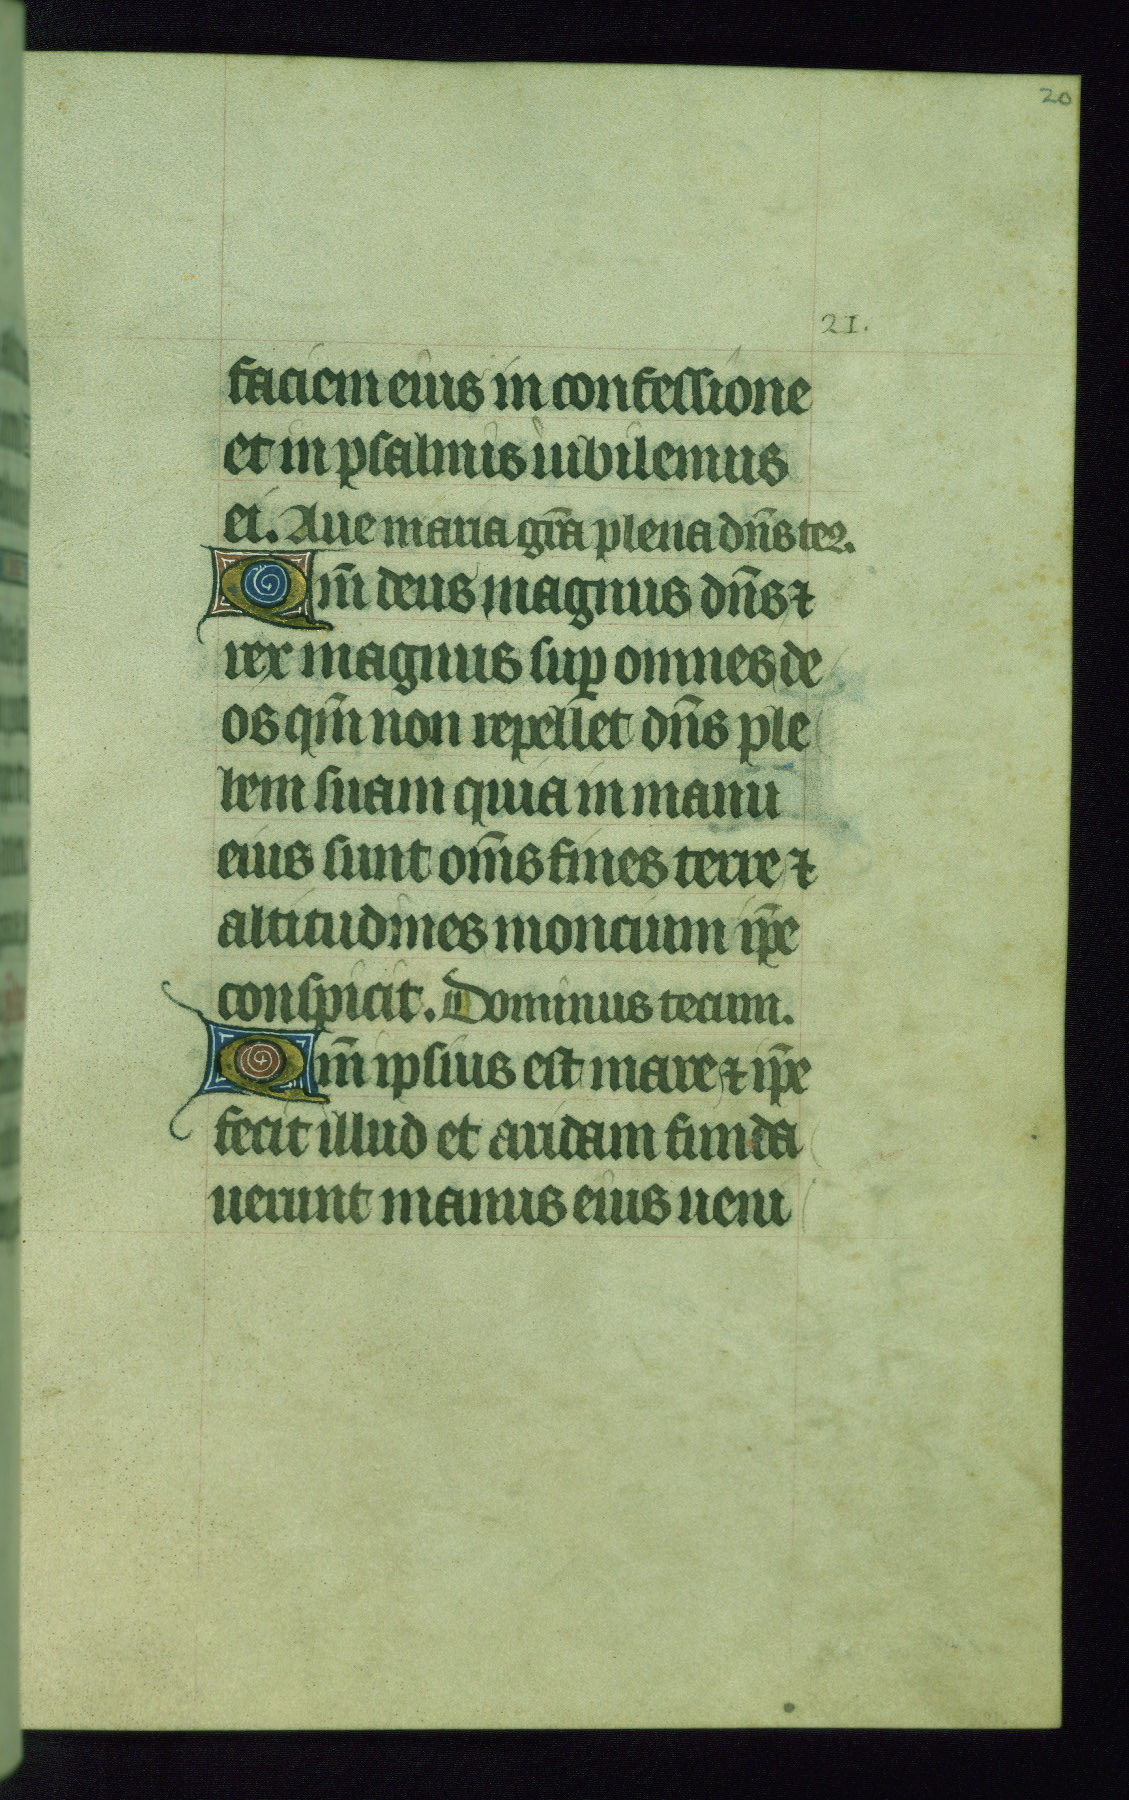 20
21.
faciem eius in confessione
et in psalmis iubilemus
ei. Aue maria grã plena dñs tec.
Qm̃ deus magnus dñs ⁊
rex magnus sup omnes de
os qm̃ non repellet dñs ple
bem suam quia in manu
eius sunt om̃s fines terre ⁊
altitudines moncium ip̃e
conspicit. Dominus tecum.
Qm̃ ipsius est mare ⁊ ip̃e
fecit illud et aridam funda
uerunt manus eius ueni